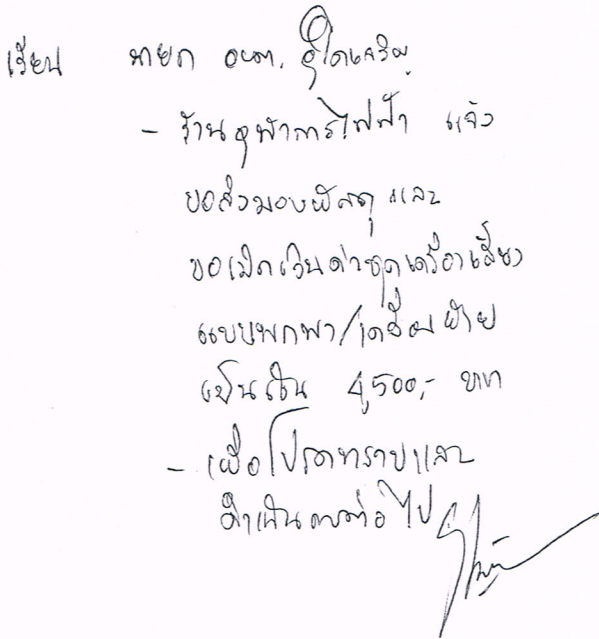 เรียน นายก อบต. อุโดมเจริญ
- ร้านจุฬาการไฟฟ้า แจ้ง
ขอส่งมอบพัสดุ และ
ขอเบิกเงินค่าชุดเครื่องเสียง
แบบพกพา/เคลื่อนย้าย
เป็นเงิน 4,500.- บาท
- เพื่อโปรดทราบและ
ดำเนินการต่อไป